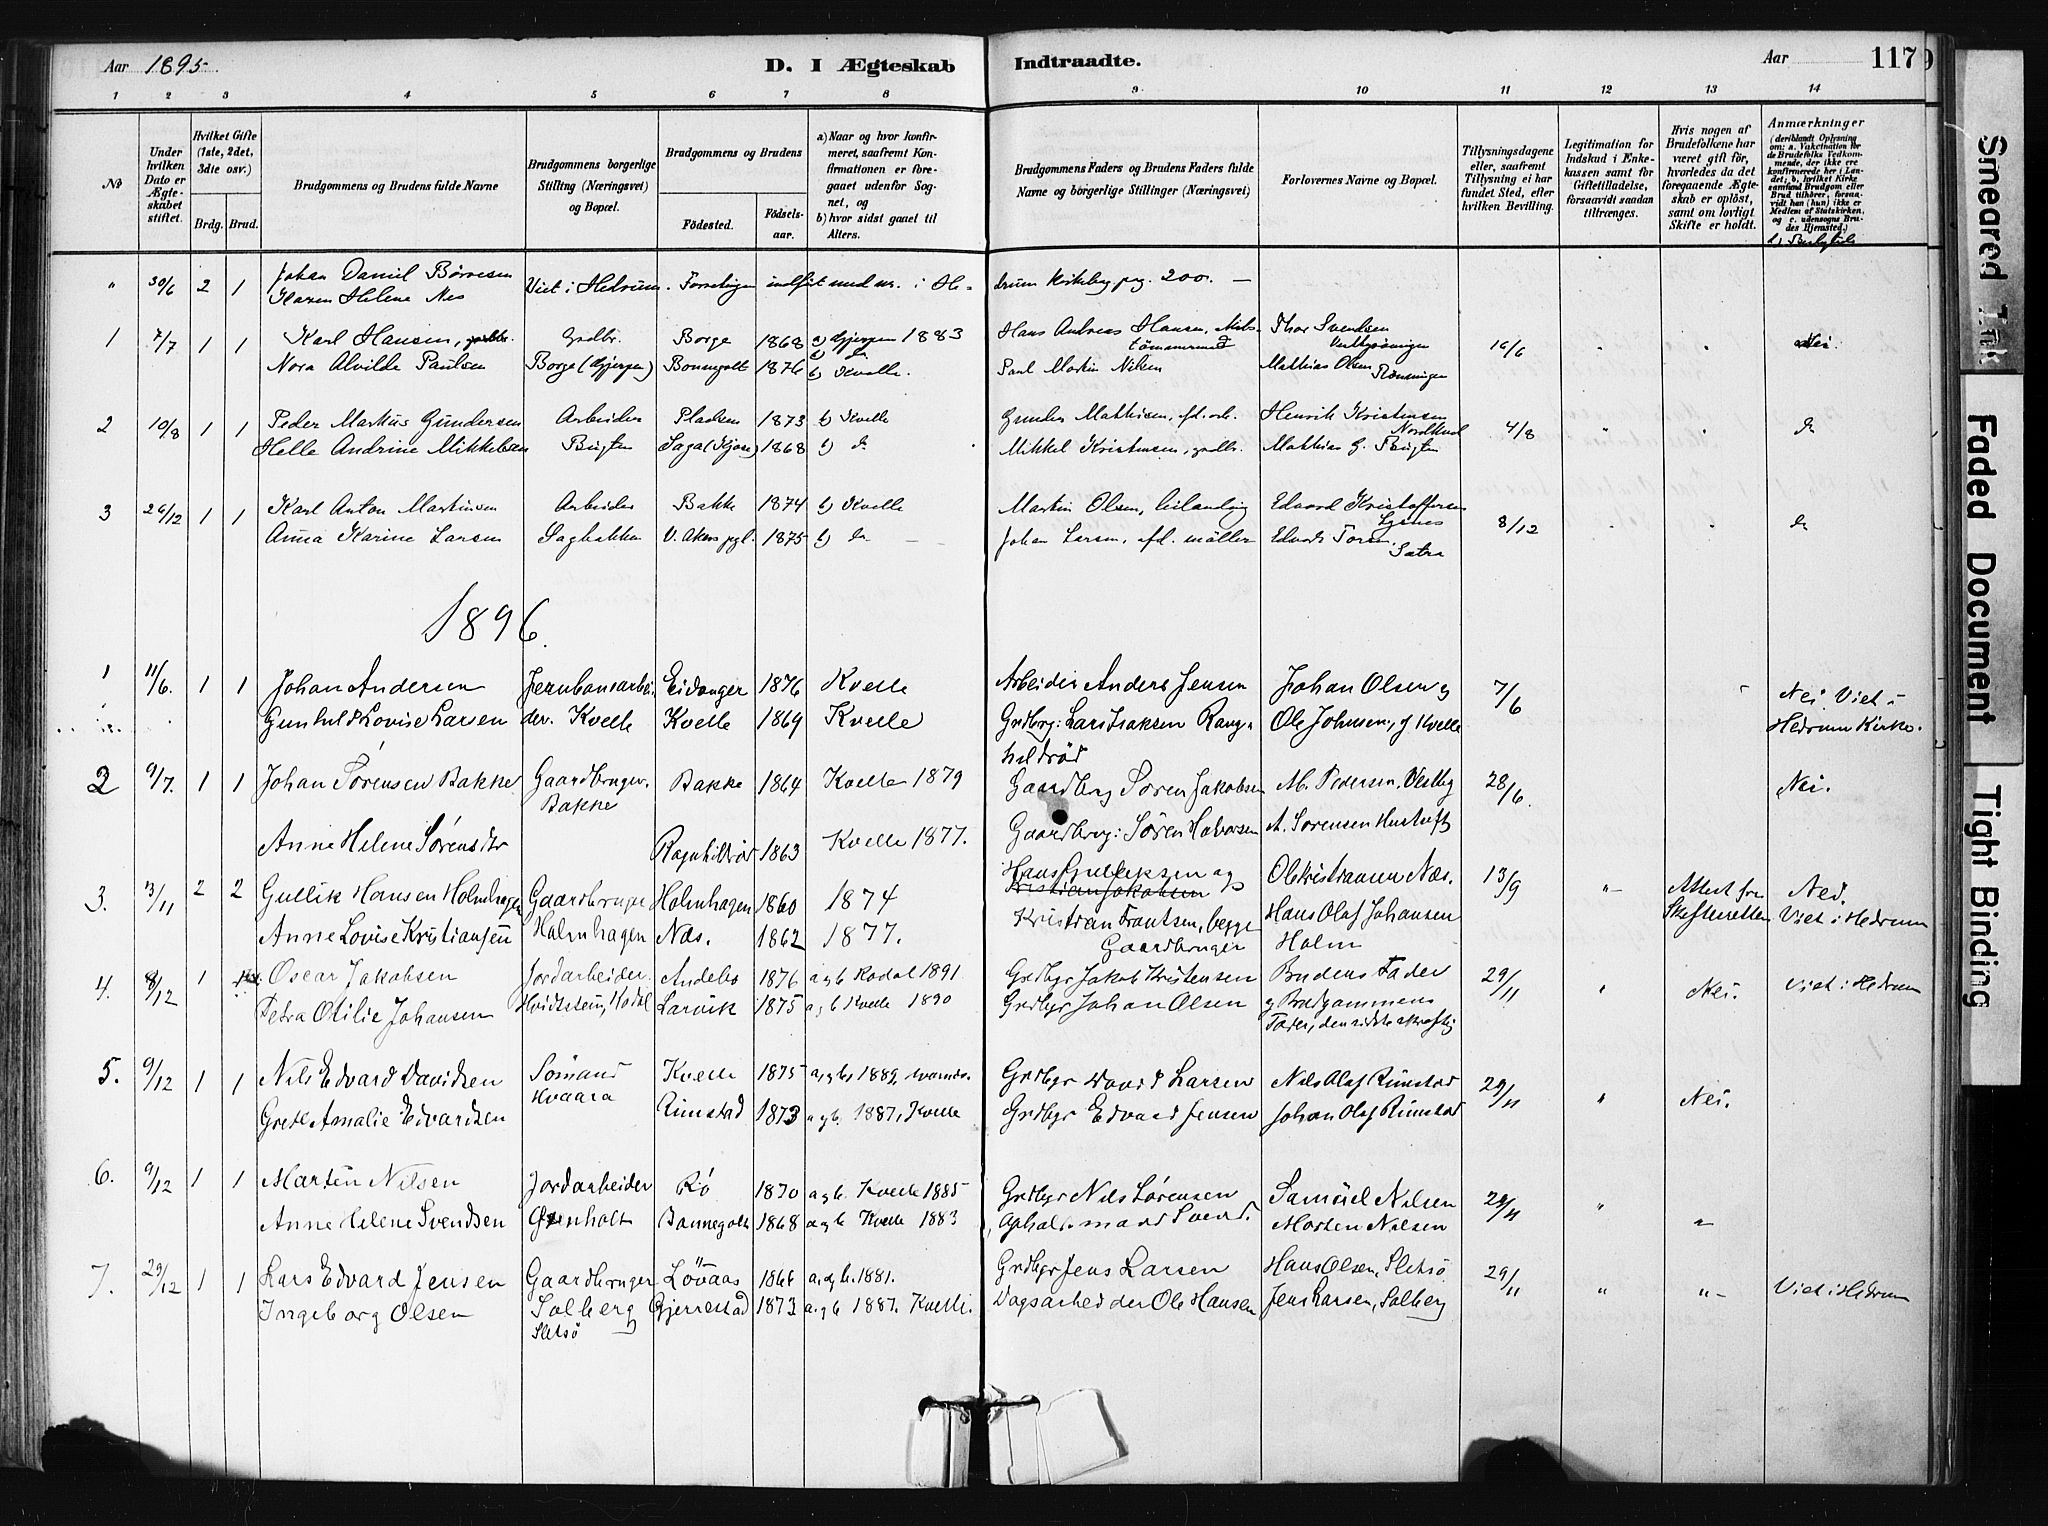 Aar 1895
D. I Ægteskab Indtraadte.
Aar
117
1 2 3 4 5 6 7 8 9 10 11 12 13 14
No
Under hvilken Dato er Ægteskabet stiftet.
Hvilket Gifte (1ste, 2det, 3die osv.)
Brdg. Brud.
Brudgommens og Brudens fulde Navne
Brudgommens borgerlige Stilling (Næringsvei) og Bopæl.
Brudgommens og Brudens
Fødested. Fødselsaar.
a) Naar og hvor konfirmeret, saafremt Konfirmationen er foregaaet udenfor Sognet, og
b) hvor sidst gaaet til Alters.
Brudgommens Faders og Brudens Faders fulde Navne og borgerlige Stillinger (Næringsvei)
Forlovernes Navne og Bopæl.
Tillysningsdagene eller, saafremt Tillysning ei har fundet Sted, efter hvilken Bevilling.
Legitimation for Indskud i Enkekassen samt for Giftetilladelse, forsaavidt saadan tiltrænges.
Hvis nogen af Brudefolkene har været gift før, hvorledes da det foregaaende Ægteskab er opløst, samt om lovligt Skifte er holdt.
Anmærkninger
(deriblandt Oplysning om: a. Vakcination for de Brudefolks Vedkommende, der ikke ere konfirmerede her i Landet; b. hvilket Kirkesamfund Brudgom eller Brud tilhører, forsaavidt han (hun) ikke er Medlem af Statskirken, og c. udensogns Brudes Hjemsted.)
" 30/6 2 1 Johan Daniel Børresen Viet i Hedrum. Forretningen indført med nr. i He- drum Kirkebog pag. 200. —
Karen Helene Nes
1 7/7 1 1 Karl Hansen, Grdbr. Borge 1868 a) Gjerpen 1883 Hans Andreas Hansen, Thor Svendsen 16/6 " " Nei
Nora Alvilde Paulsen Borge (Gjerpen) Bonnegolt 1876 b) Kvelle. Paul Martin Nilsen Mathias Olsen
2 10/8 1 1 Peder Markus Gundersen Arbeider Pladsen 1873 b) Kvelle Gunder Mathisen, Henrik Kristensen 4/8 " " do
Helle Andrine Mikkelsen Bugten Saga (Kjose) 1868 b) do Mikkel Kristensen, grdbr. Mathias G. Bugten
3 26/12 1 1 Karl Anton Martinsen Arbeider Bakke 1874 b) Kvelle Martin Olsen, Edvard Kristoffersen 8/12 " " do
Anna Karine Larsen Sagbakken V. Aker pgl. 1875 b) do Johan Larsen, fd. møller
1896.
1 11/6. 1 1 Johan Andersen Jernbanearbei- Eidanger 1876 Kvelle Arbeider Anders Jensen Johan Olsen og 7/6 " Nei. Viet i
Gunhild Lovise Larsen der. Kvelle Kvelle 1869 Kvelle Grdbrg: Lars Isaksen Ragn- Ole Johnsen, af Kvelle Hedrum Kirke.
hildrød
2 9/7. 1 1 Johan Sørensen Bakke Gaardbruger. Bakke 1864 Kvelle 1879 Gaardbrg Søren Jakobsen M. Pedersen, Vestby 28/6. Nei.
Bakke
Anne Helene Sørensdtr Ragnhildrød 1863 Kvelle 1877. Gaardbrug: Søren Halvorsen A. Sørensen
3. 13/11 2 2 Gullik Hansen Holmhagen Gaardbruger Holmhagen 1860 1874 Hans Gulliksen og Ole Kristiansen Næs. 13/9 " Attest fra Nei.
Kristian Jakobsen
Anne Lovise Kristiansen Holmhagen Næs. 1862 1877. Kristian Frantsen, begge Hans Olaf Johansen Skifteretten Viet i Hedrum
Gaardbruger Holm
4. 8/12 1 1 Oscar Jakobsen Jordarbeider. Andebo 1876 a og b Kodal 1891. Grdbgr Jakob Kristensen Brudens Fader 29/11 " Nei. Viet i Hedrum
Petra Otilie Johansen Hvidsteen, Kodal Larvik 1875 a og b Kvelle 1890 Grdbgr Johan Olsen og Brudgommens
Fader, den sidste skriftlig
5. 9/12 1 1 Nils Edvard Davidsen Sømand Kvelle 1875 a og b 1889, Grdbgr David Larsen Nils Olaf Rimstad 29/11 " Nei.
Kvaara
Grete Amalie Edvardsen Rimstad 1873 a og b. 1887, Kvelle Grdbgr Edvard Jensen Johan Olaf Rimstad
6. 9/12 1 1 Martin Nilsen Jordarbeider Rø 1870 a og b. Kvelle 1885 Grdbgr Nils Sørensen Samuel Nilsen 29/11 " "
Anne Helene Svendsen Grønholt Bonnegolt 1868 a og b Kvelle 1883 Opholdsmand Svend. Morten Nilsen
7. 29/12 1 1 Lars Edvard Jensen Gaardbruger Løvaas 1866 a. og b. 1881. Grdbgr Jens Larsen Hans Olsen, Sletsø 29/11 " " Viet i Hedrum
Ingeborg Olsen Solberg Gjerrestad 1873 a. og b 1887. Kvelle. Dagsarbeider Ole Hansen Jens Larsen, Solberg
Sletsø
Smeared Ink
Faded Document
Tight Binding